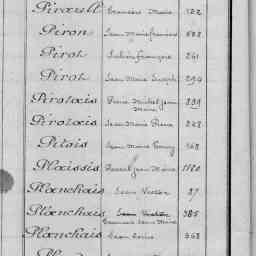 Pirauld Francois Marie 122
Piron Jean Marie Francois 608
Pirot Julien François 261
Pirot Jean Marie Joseph 290
Pirotais Pierre Michel Jean Marie 239
Pirotais Jean Marie Pierre 228
Pitois Jean Marie 168
Plaissis Marie 1180
Planchais Jean Victor 87
Planchais Jean Marie 385
Planchais Jean 568